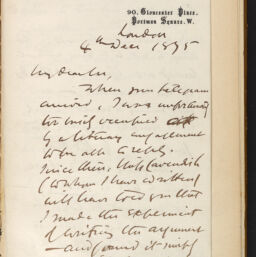 90, Gloucester Place,
Portman Square. W.
London
4th Decr 1895
My dear Sir,
When your telegram
arrived, I was unfortunately
too busily occupied
by a literary engagement
to be able to reply.
Since then, Miss Cavendish
(to whom I have written)
will have told you that
I made the experiment
of writing the argument
— and found it must